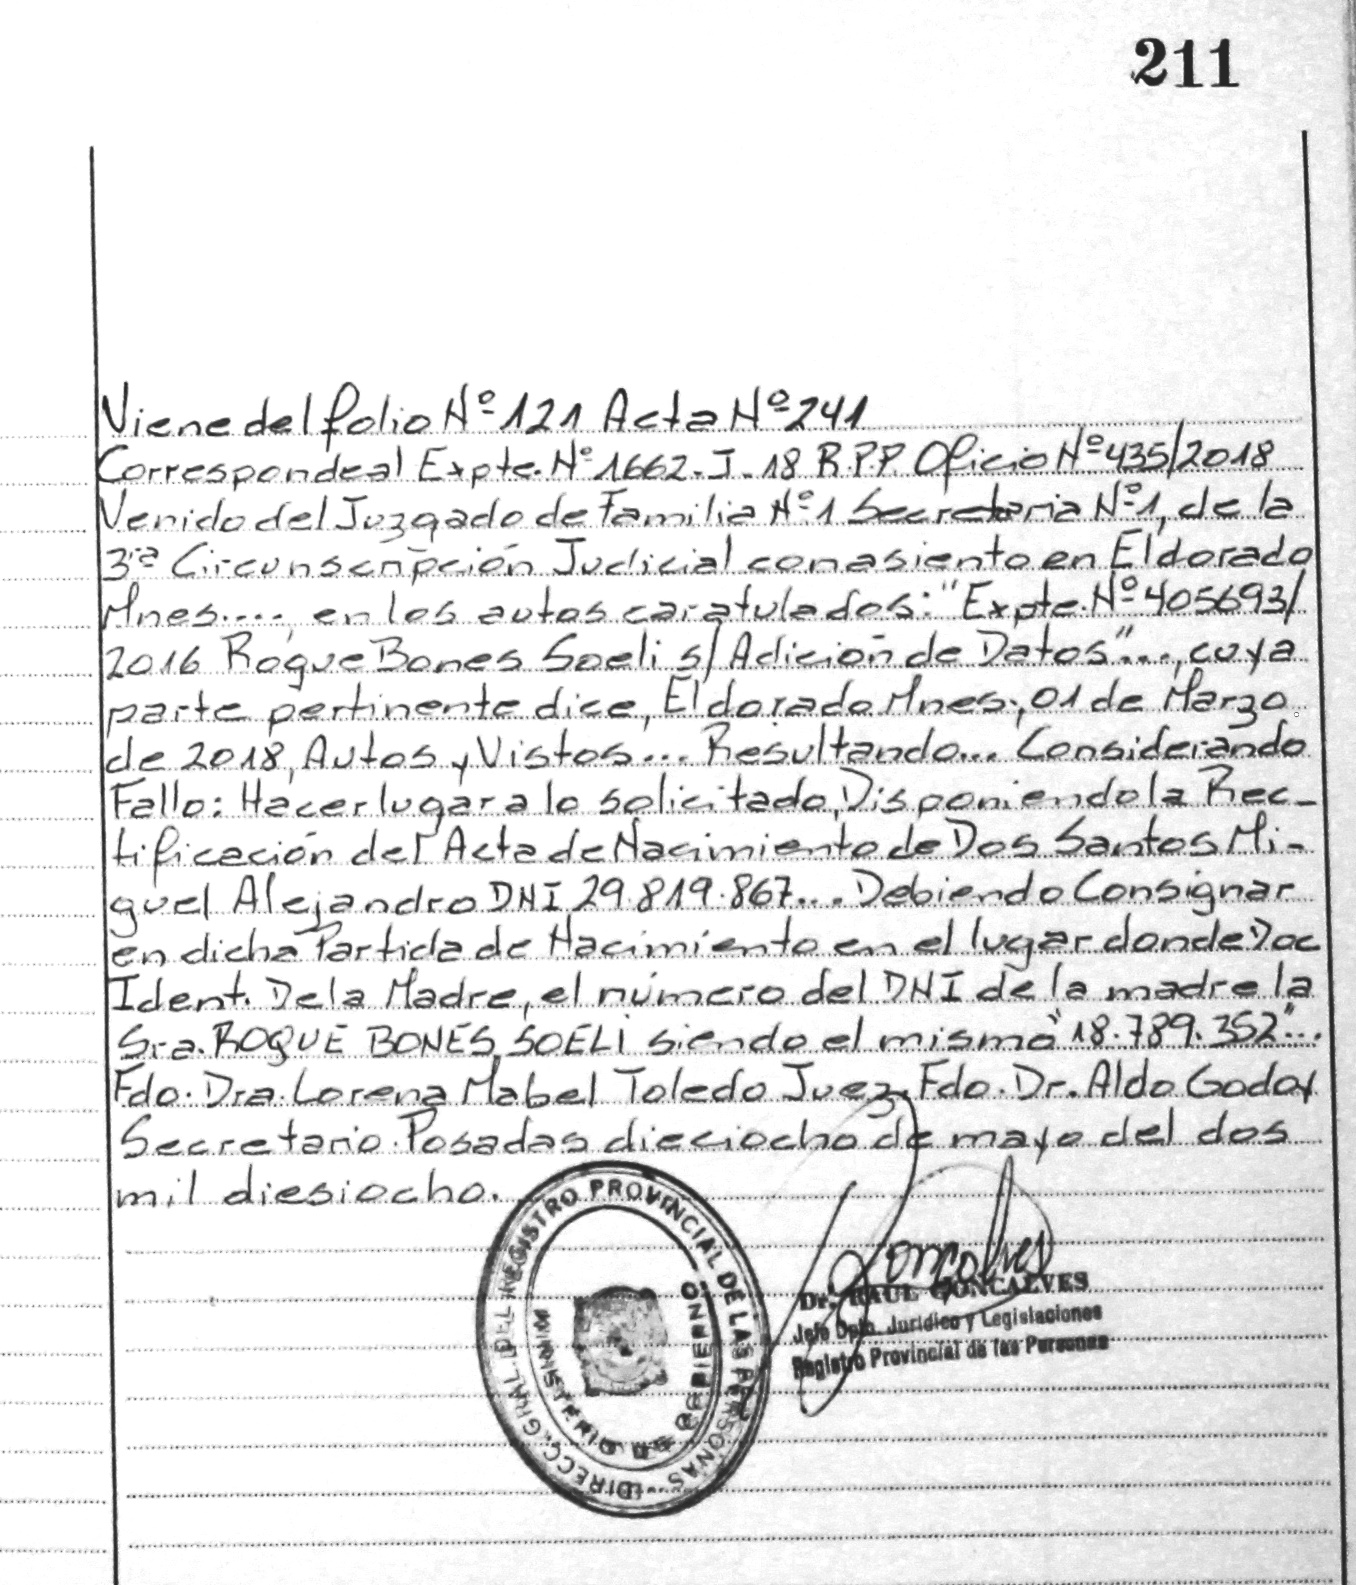 211
Viene del folio Nº 121 Acta Nº 241
Corresponde al Expte. Nº 1662-J-18 R.P.P. Oficio Nº 435/2018
Venido del Juzgado de Familia Nº 1 Secretaria Nº 1, de la
3ra Circunscripción Judicial con asiento en Eldorado
Mnes...., en los autos caratulados: "Expte. Nº 405693/
2016 Roque Bones Soeli s/ Adición de Datos"..., cuya
parte pertinente dice, Eldorado Mnes., 01 de Marzo
de 2018, Autos y Vistos... Resultando... Considerando
Fallo: Hacer lugar a lo solicitado, Disponiendo la Rec-
tificación del Acta de Nacimiento de Dos Santos Mi-
guel Alejandro DNI 29.819.867... Debiendo Consignar
en dicha Partida de Nacimiento en el lugar donde Doc
Ident. De la Madre, el número del DNI de la madre la
Sra. ROQUE BONES, SOELI siendo el mismo "18.789.352"...
Fdo. Dra. Lorena Mabel Toledo Juez, Fdo. Dr. Aldo Godoy
Secretario. Posadas dieciocho de mayo del dos
mil diesiocho.
DIRECC. GRAL. DEL REGISTRO PROVINCIAL DE LAS PERSONAS
MINISTERIO DE GOBIERNO
Goncalves
Dr. RAUL GONCALVES
Jefe Dpto. Jurídico y Legislaciones
Registro Provincial de las Personas